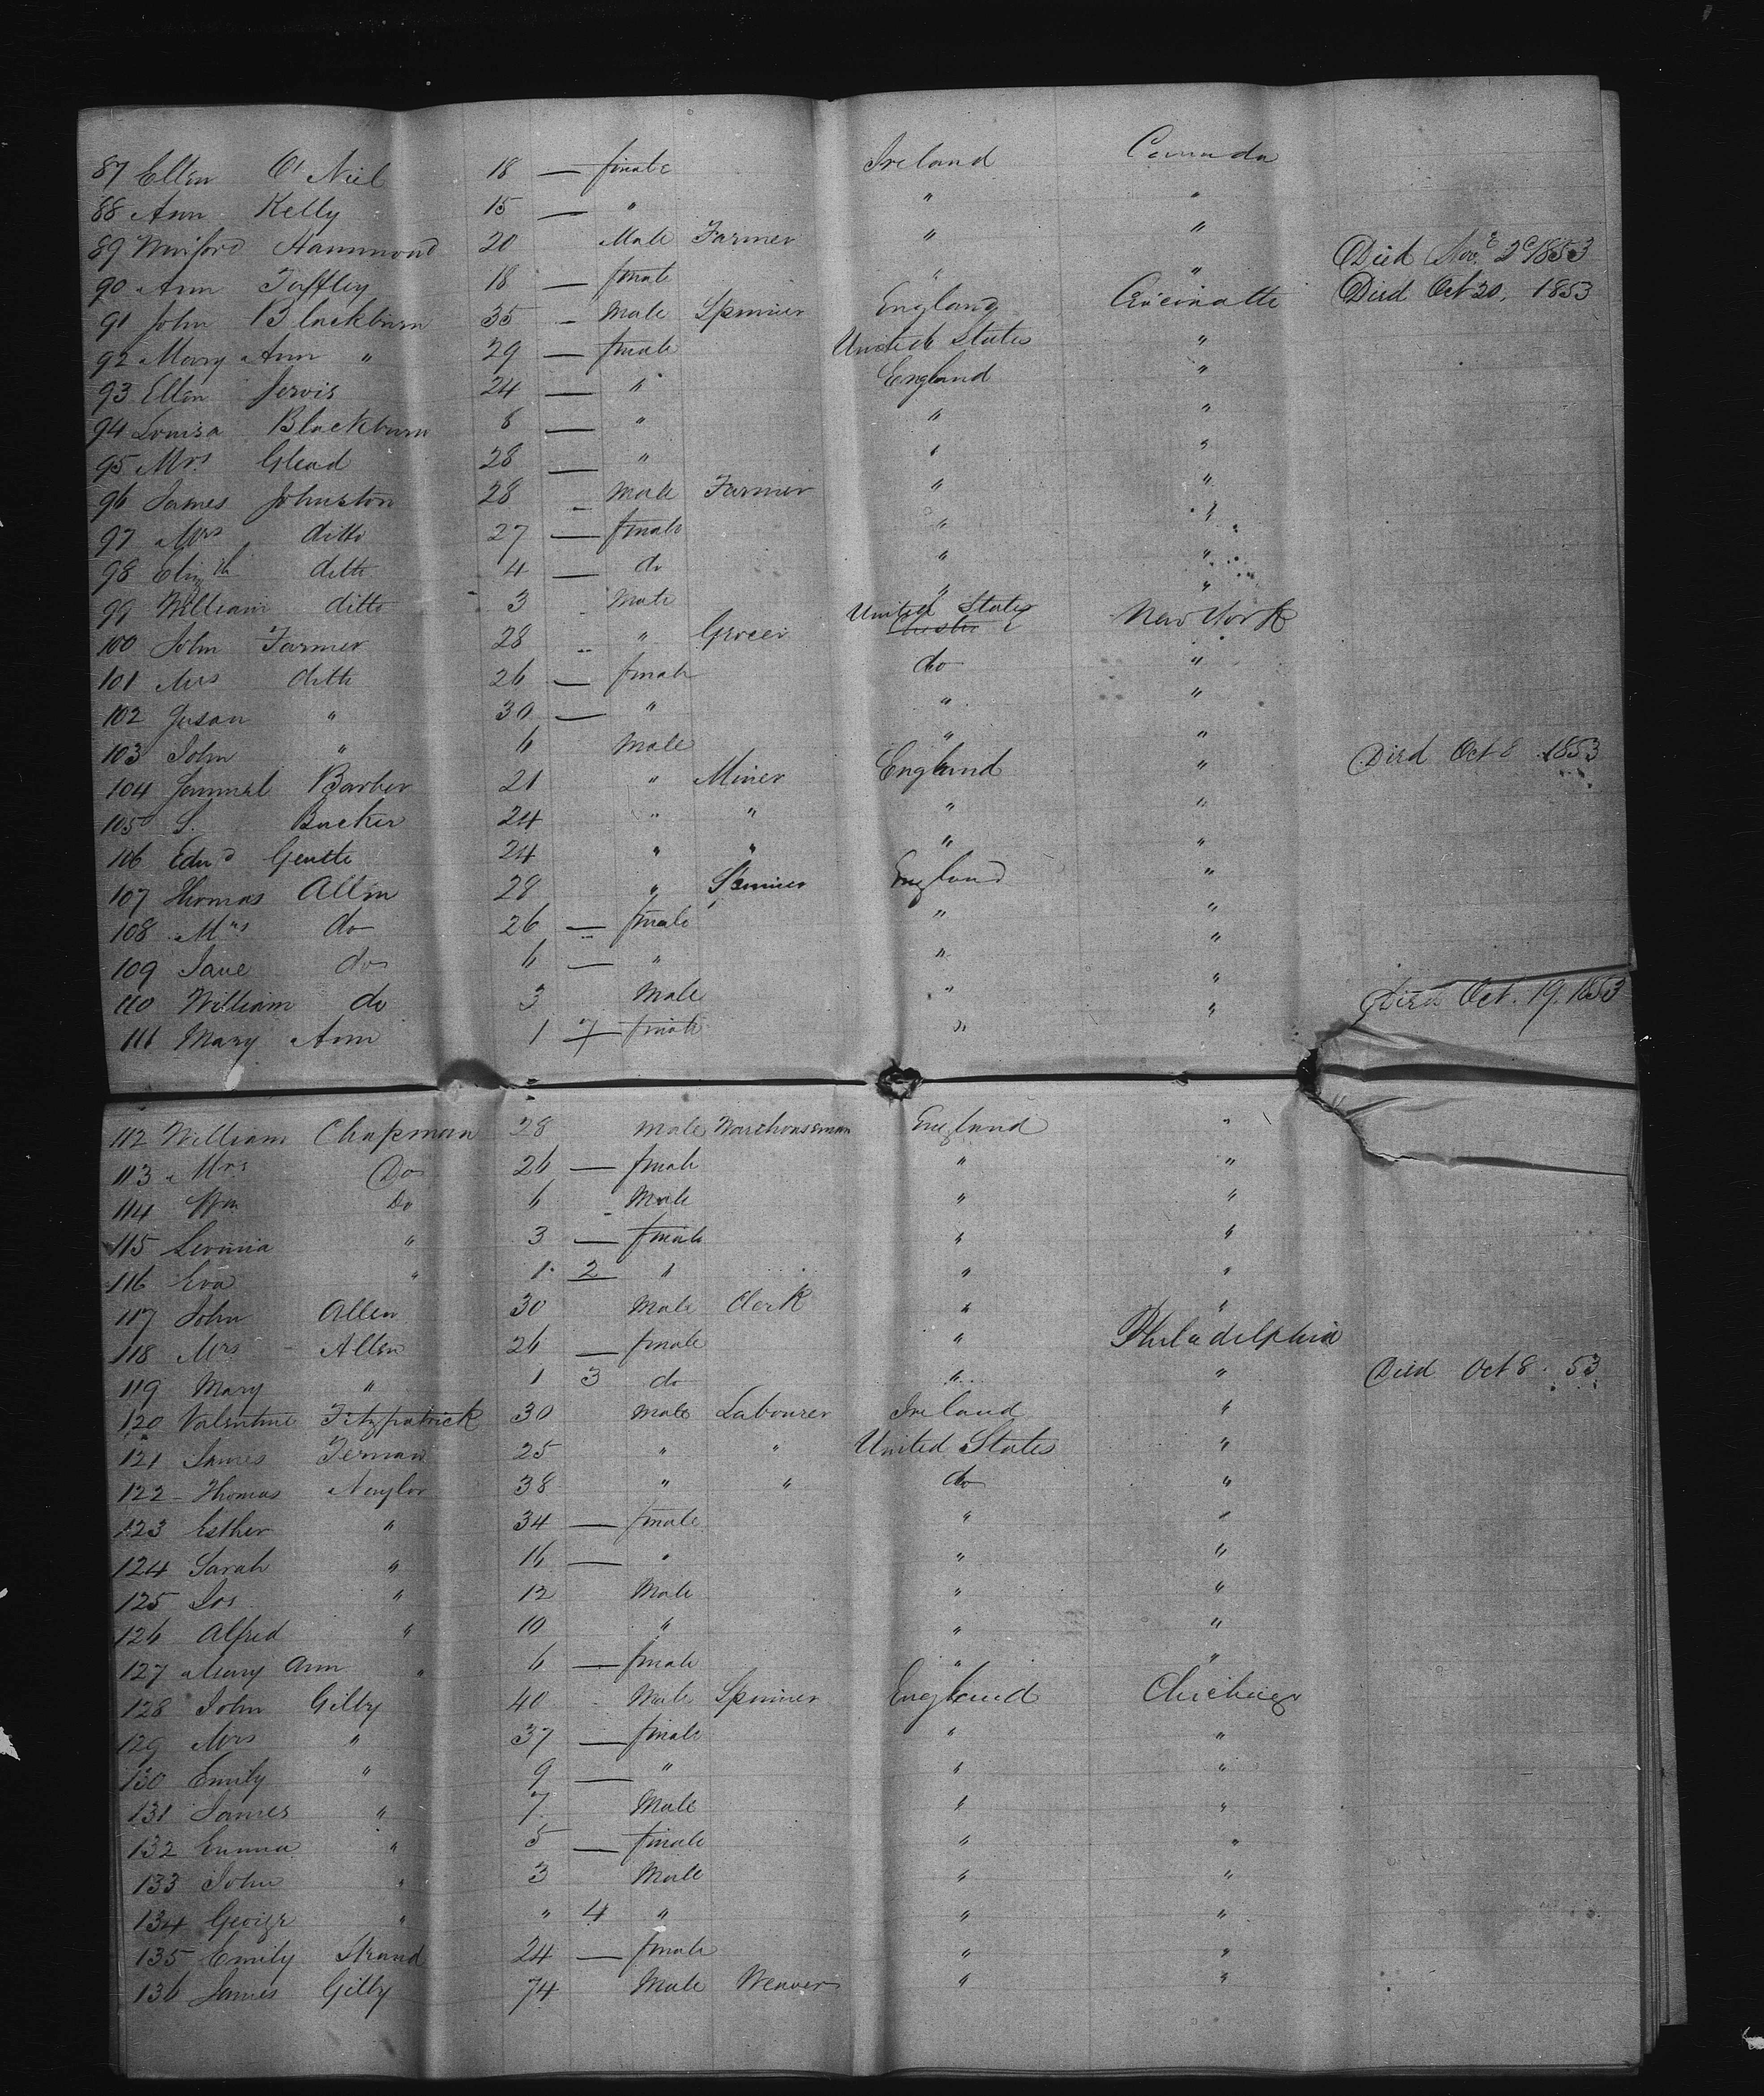 87 Ellen O'Niel 18 — female Ireland Canada
88 Ann Kelly 15 — " " "
89 Winiford Hammond 20 Male Farmer " "
90 Ann Taffley 18 — female " " Died Nov. 2d 1853
91 John Blackburn 35 - Male Spinner England Cincinatte Died Oct 20. 1853
92 Mary Ann " 29 — female United States "
93 Ellen Jervis 24 — " England "
94 Louisa Blackburn 8 — " " "
95 Mrs Glead 28 — " " "
96 James Johnston 28 - Male Farmer " "
97 Mrs ditto 27 — female " "
98 Elizth ditto 4 — do " "
99 William ditto 3 Male " "
100 John Farmer 28 " Grocer United States New York
101 Mrs ditto 26 — female do "
102 Susan " 30 — " " "
103 John " 6 Male " "
104 Sammel Barber 21 " Miner England " Died Oct 8 1853
105 S. Backer 24 " " " "
106 Edwd 24 " " " "
107 Thomas Allin 28 " Spinner England "
108 Mrs do 26 — female " "
109 Jane do 6 — " " "
110 William do 3 Male " "
111 Mary Ann 1 7 female " " Died Oct. 19. 1853
112 William Chapman 28 Male Warehouseman England "
113 Mrs Do 26 — female " "
114 Wm Do 6 - Male " "
115 3 — female " "
116 Eva " 1 2 " " "
117 John Allen 30 Male Clerk " "
118 Mrs - Allen 26 — female " Philadelphia
119 Mary " 1 3 do " " Died Oct 8. 53
120 Valentine Fitzpatrick 30 Male Labourer Ireland "
121 James 25 " " United States "
122 - Thomas Naylor 38 " " do "
123 Esther " 34 — female " "
124 Sarah " 16 — " " "
125 Jos " 12 Male " "
126 Alfred " 10 " " "
127 Mary Ann " 6 — female " "
128 John Gilby 40 - Male Spinner England Chichiago
129 Mrs " 37 — female " "
130 Emily " 9 — " " "
131 James " 7 Male " "
132 Emma " 5 — female " "
133 John " 3 Male " "
134 George " " 4 " " "
135 Emily Strand 24 — female " "
136 James Gilby 74 Male Weaver " "